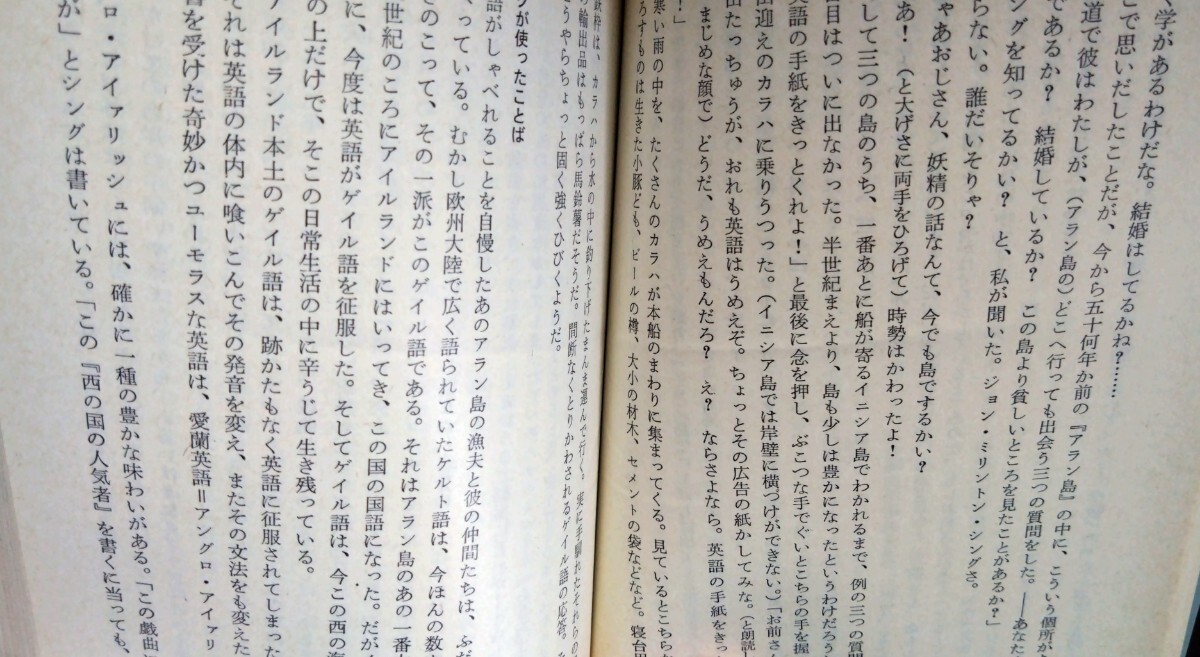 く学があるわけだな。結婚はしてるかね?……
こで思いだしたことだが、今から五十何年か前の『アラン島』の中に、こういう個所が
道で彼はわたしが、(アラン島の)どこへ行っても出会う三つの質問をした。――あなた
であるか? 結婚しているか? この島より貧しいところを見たことがあるか?」
ングを知ってるかい? と、私が聞いた。ジョン・ミリントン・シングさ。
らない。誰だいそりゃ?
ゃあおじさん、妖精の話なんて、今でも島でするかい?
あ! (と大げさに両手をひろげて)時勢はかわったよ!
して三つの島のうち、一番あとに船が寄るイニシア島でわかれるまで、例の三つの質問
目はついに出なかった。半世紀まえより、島も少しは豊かになったというわけだろう
英語の手紙をきっとくれよ!」と最後に念を押し、ぶこつな手でぐいとこちらの手を握
出迎えのカラハに乗りうつった。(イニシア島では岸壁に横づけができない。)「お前さん
出たっちゅうが、おれも英語はうめえぞ。ちょっとその広告の紙かしてみな。(と朗読
まじめな顔で)どうだ、うめえもんだろ? え? ならさよなら。英語の手紙をきっ
!」
寒い雨の中を、たくさんのカラハが本船のまわりに集まってくる。見ているとこちら
ろすものは生きた小豚ども、ビールの樽、大小の材木、セメントの袋などなど。寝台用
鉄枠は、カラハから水の中に釣り下げたまんま運んで行く。実に手馴れたそれらの
の輸出品はもっぱら馬鈴薯だそうだ。間断なくとりかわされるゲイル語の応答。
どうやらちょっと固く強くひびくようだ。
うが使ったことば
語がしゃべれることを自慢したあのアラン島の漁夫と彼の仲間たちは、ふだ
くっている。むかし欧州大陸で広く語られていたケルト語は、今ほんの数
そのこって、その一派がこのゲイル語である。それはアラン島のあの一番
世紀のころにアイルランドにはいってき、この国の国語になった。だが
に、今度は英語がゲイル語を征服した。そしてゲイル語は、今この西の海
の上だけで、そこの日常生活の中に辛うじて生き残っている。
アイルランド本土のゲイル語は、跡かたもなく英語に征服されてしまった
それは英語の体内に喰いこんでその発音を変え、またその文法をも変えた
響を受けた奇妙かつユーモラスな英語は、愛蘭英語=アングロ・アイリ
ロ・アイリッシュには、確かに一種の豊かな味わいがある。「この戯曲
が」とシングは書いている。「この『西の国の人気者』を書くに当っても、